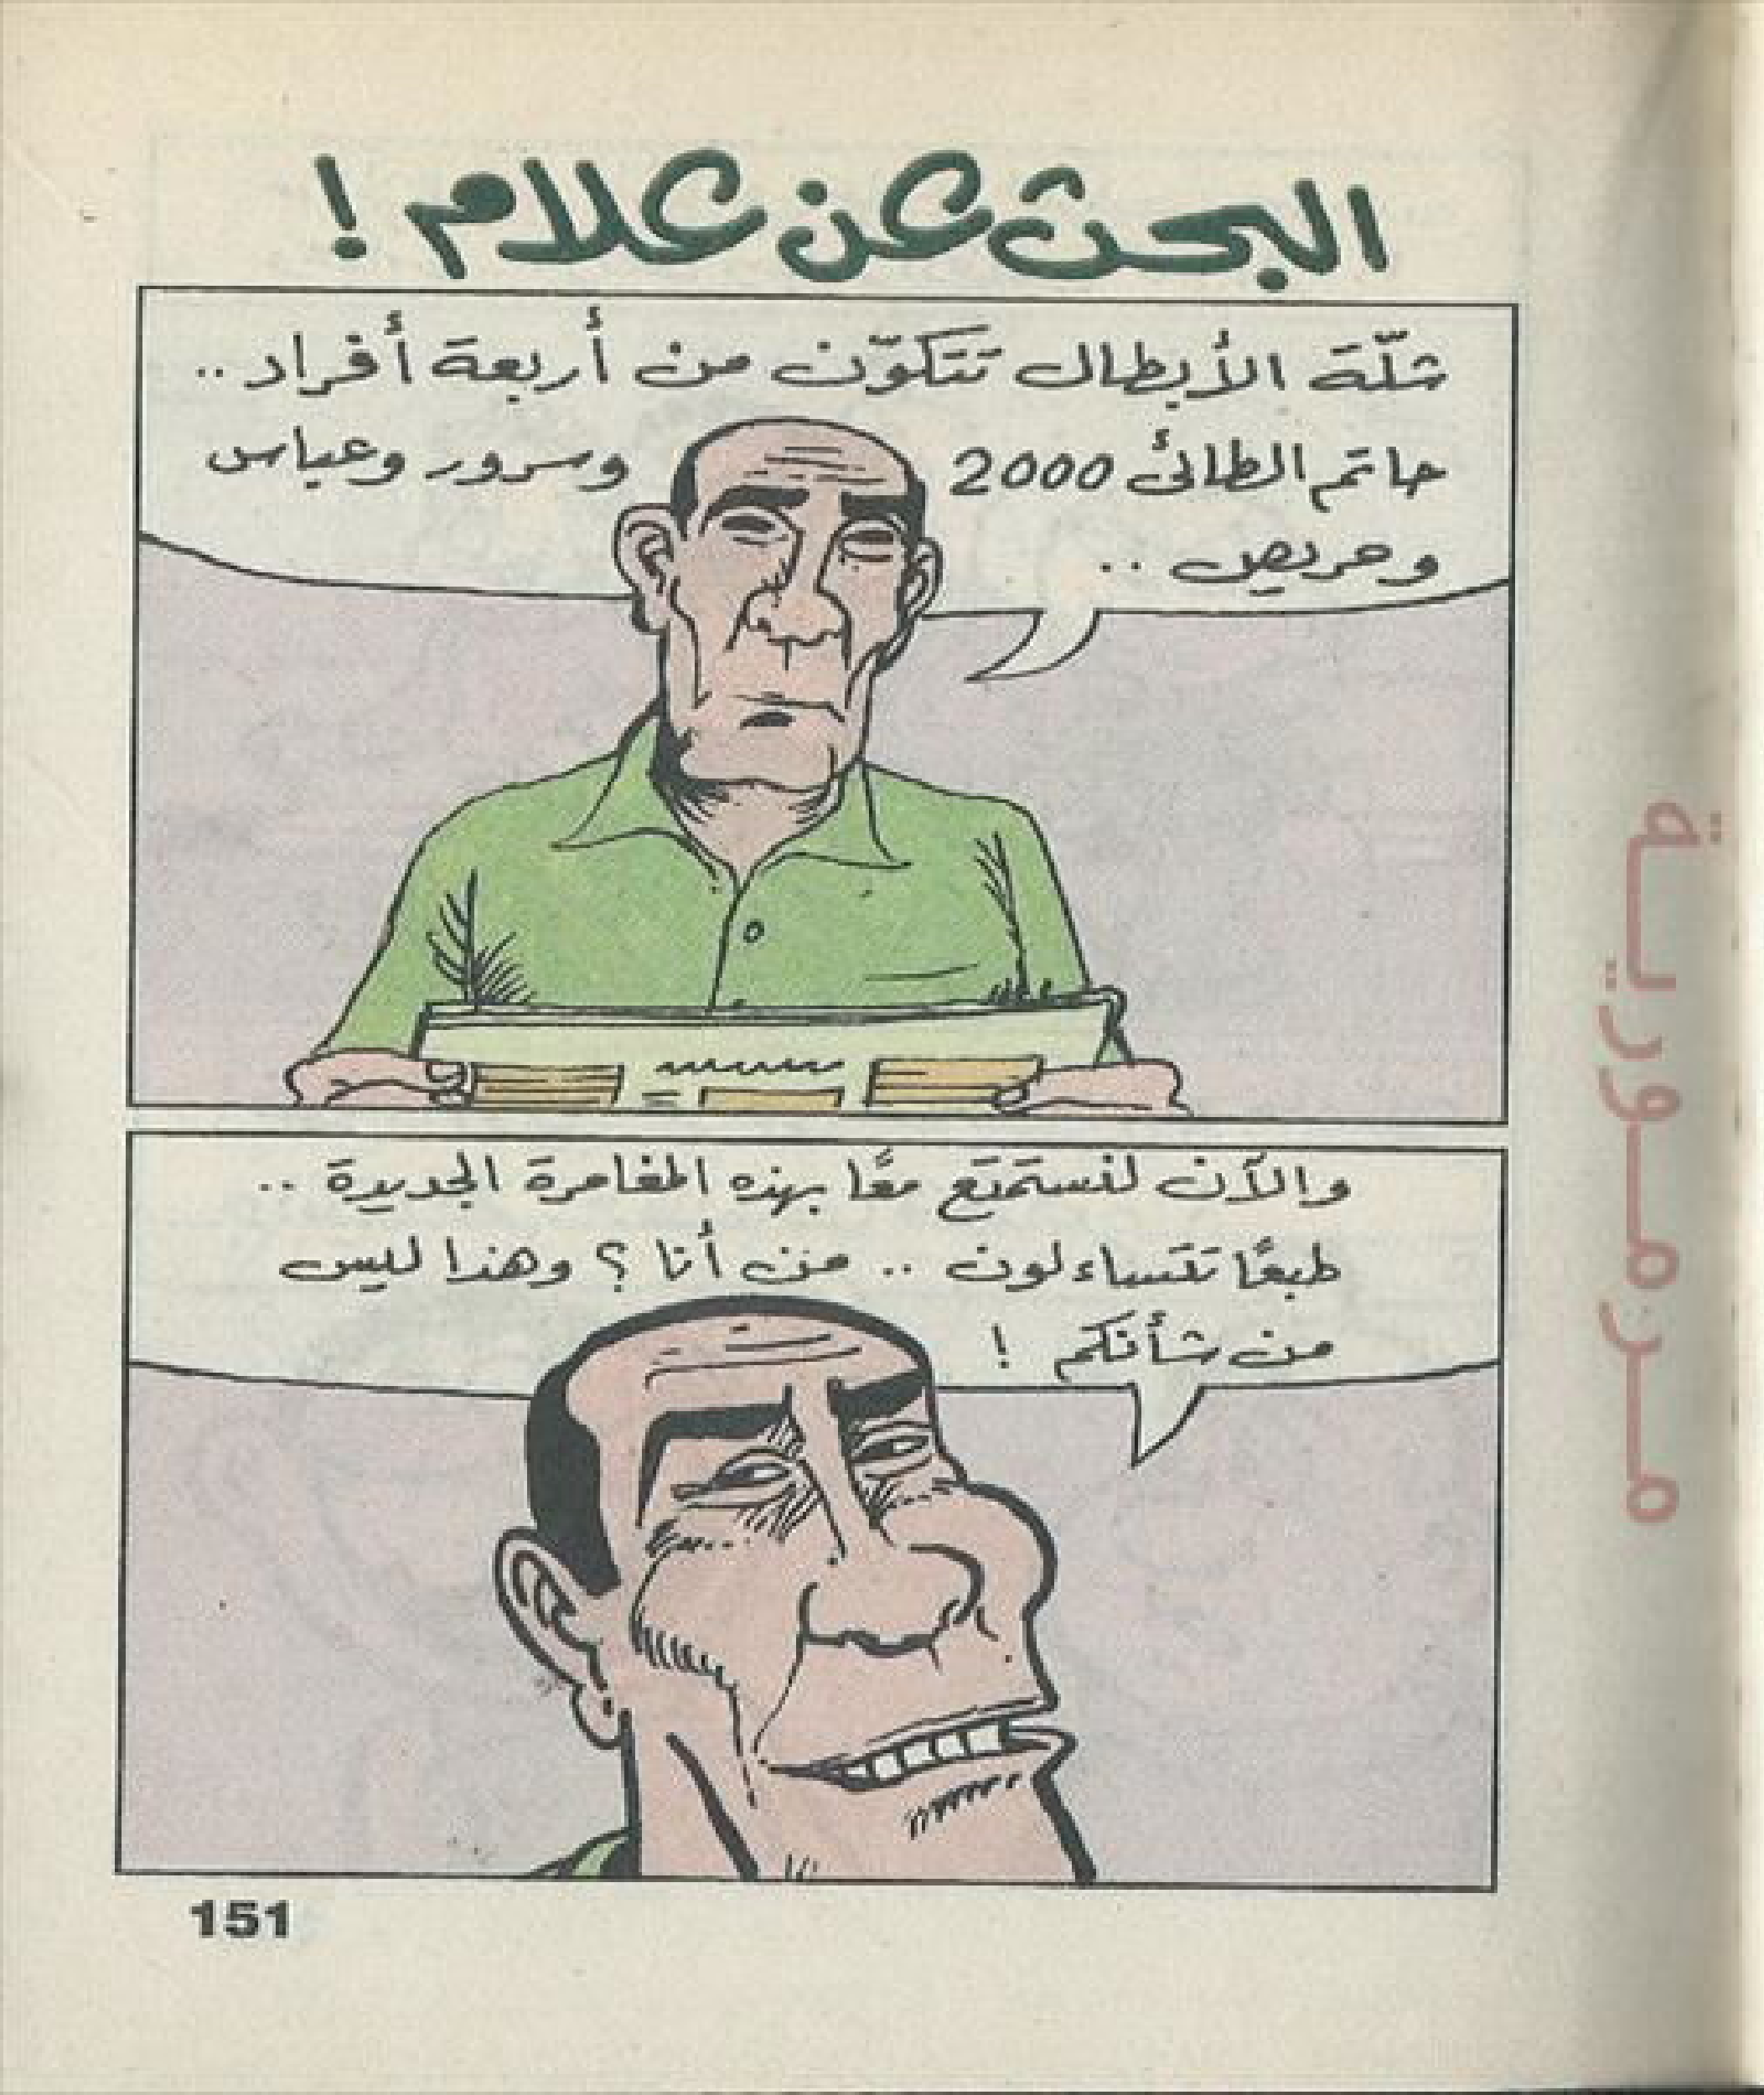 البحث عن علام !
شلّة الأبطال تتكوّن من أربعة أفراد ..
حاتم الطائى 2000 وسرور وعباس
وحريص ..
والآن لنستمتع معًا بهذه المغامرة الجديدة ..
طبعًا تتساءلون .. من أنا ؟ وهذا ليس
من شأنكم !
151
مرمورية